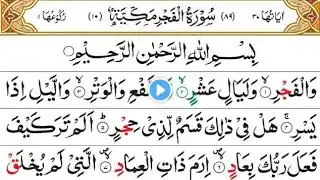 اٰیَاتُهَا ۳۰ (۸۹) سُوْرَةُ الْفَجْرِ مَكِّیَّةٌ (۱۰) رُكُوْعُهَا ۱
بِسْمِ اللّٰهِ الرَّحْمٰنِ الرَّحِیْمِ
وَالْفَجْرِ ۙ﴿۱﴾ وَلَیَالٍ عَشْرٍ ۙ﴿۲﴾ وَّالشَّفْعِ وَالْوَتْرِ ۙ﴿۳﴾ وَالَّیْلِ اِذَا
یَسْرِ ۚ﴿۴﴾ هَلْ فِیْ ذٰلِكَ قَسَمٌ لِّذِیْ حِجْرٍ ؕ﴿۵﴾ اَلَمْ تَرَ كَیْفَ
فَعَلَ رَبُّكَ بِعَادٍ ۪ۙ﴿۶﴾ اِرَمَ ذَاتِ الْعِمَادِ ۪ۙ﴿۷﴾ الَّتِیْ لَمْ یُخْلَقْ